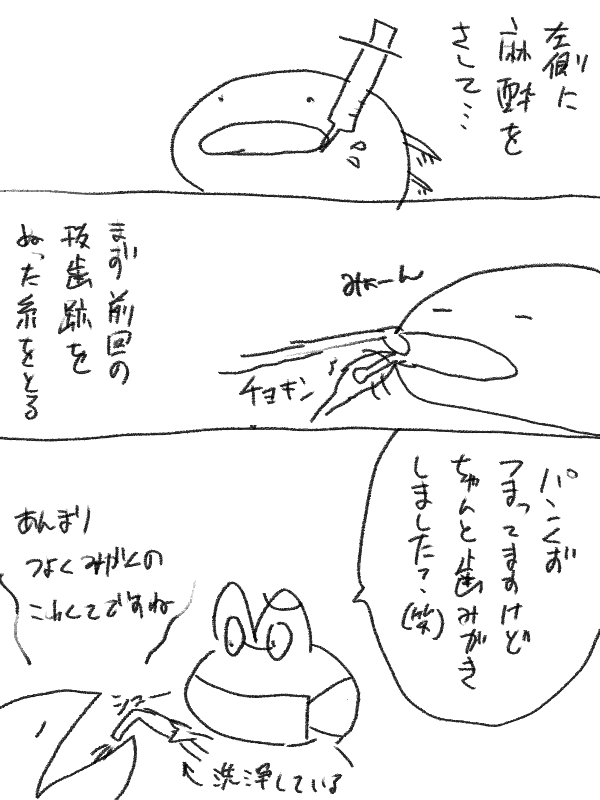 左側に
麻酔を
さして…
みょーん
チョキン
まず前回の
抜歯跡を
ぬった糸をとる
パンくず
つまってますけど
ちゃんと歯みがき
しました?(笑)
あんまり
つよくみがくの
こわくてですね
シュー
洗浄している